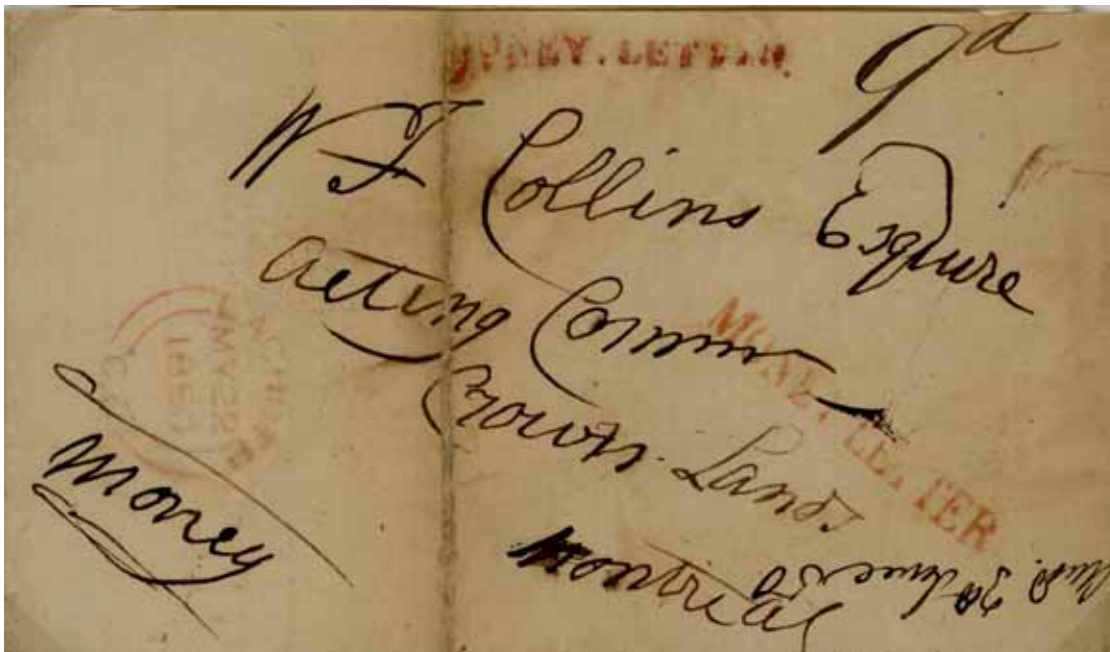 MONEY. LETTER.
9d
W F Collins Esquire
Acting Comm
Crown Lands
Montreal
MONEY LETTER
Money
MY 22
1850
June 50